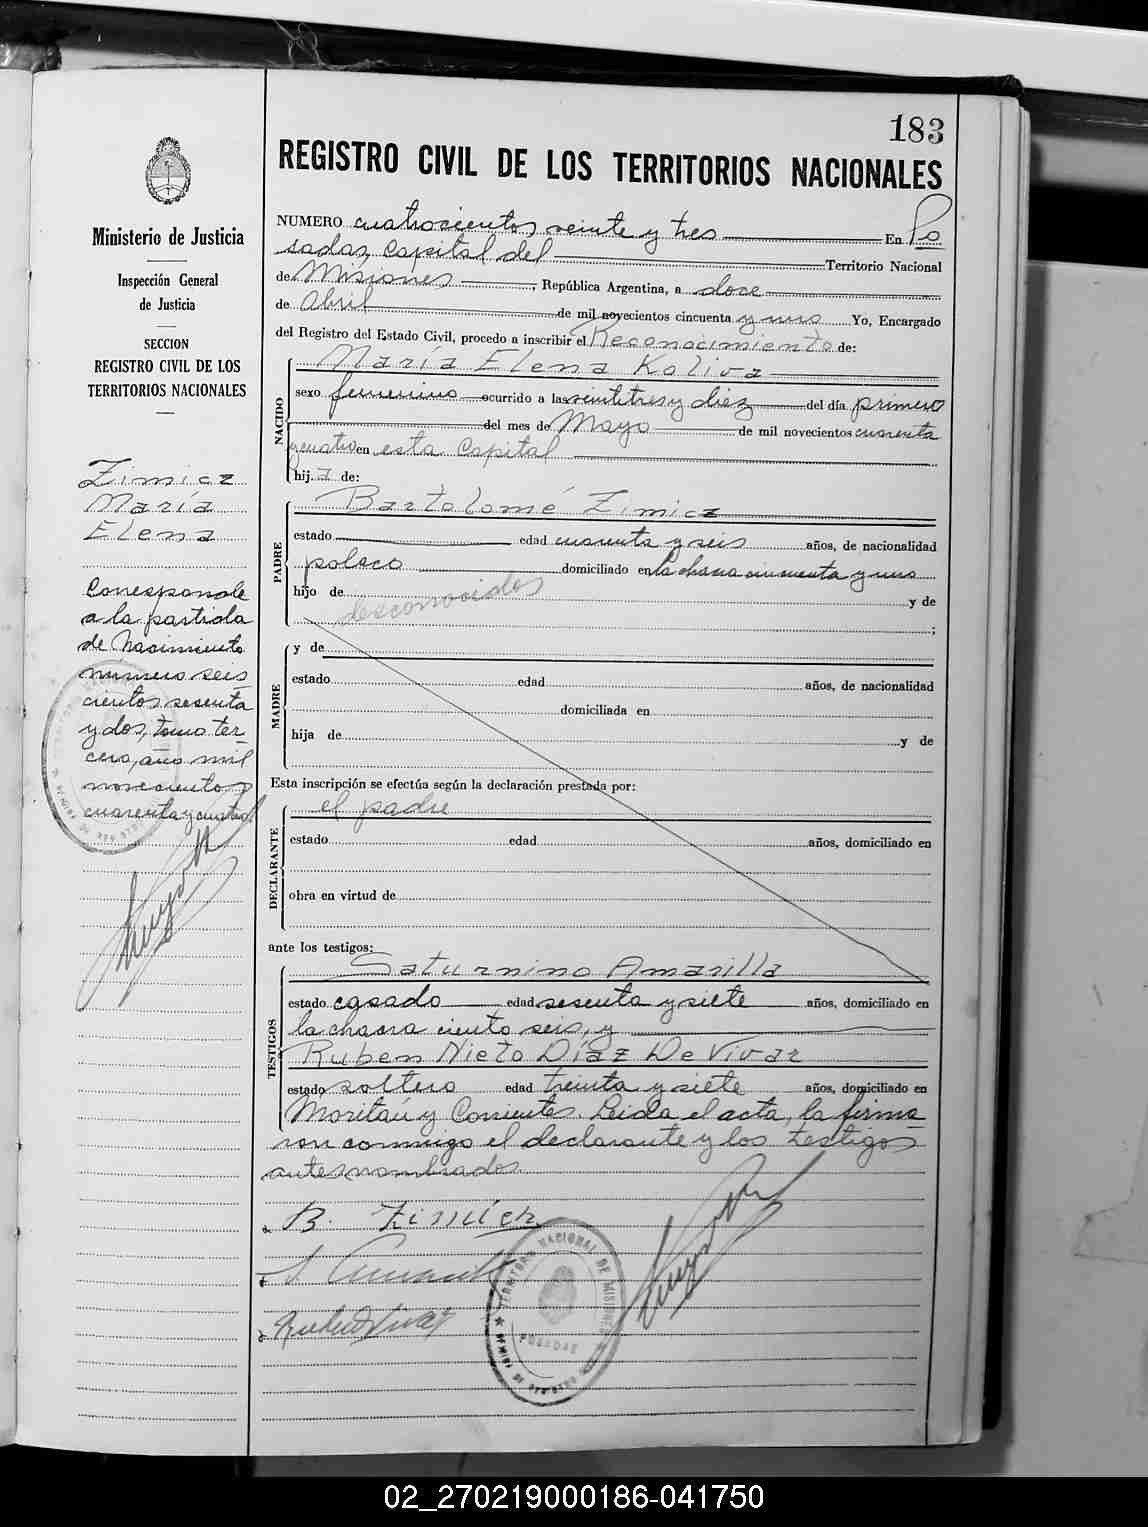 183
REGISTRO CIVIL DE LOS TERRITORIOS NACIONALES
Ministerio de Justicia
Inspección General
de Justicia
SECCION
REGISTRO CIVIL DE LOS
TERRITORIOS NACIONALES
Zimicz
María
Elena
Corresponde
a la partida
de Nacimiento
número seis
cientos sesenta
y dos, tomo ter-
cero, año mil
novecientos
cuarenta y cuatro.
NUMERO cuatrocientos veinte y tres En Po
sadas, Capital del Territorio Nacional
de Misiones, República Argentina, a doce
de Abril de mil novecientos cincuenta y uno Yo, Encargado
del Registro del Estado Civil, procedo a inscribir el Reconocimiento de:
NACIDO
María Elena Koliva
sexo femenino ocurrido a las veintitres y diez del día primero
del mes de Mayo de mil novecientos cuarenta
y cuatro en esta Capital
hij a de:
PADRE
Bartolomé Zimicz
estado edad cuarenta y seis años, de nacionalidad
polaco domiciliado en la chacra cincuenta y uno
hijo de y de
desconocidos
;
MADRE
y de
estado edad años, de nacionalidad
domiciliada en
hija de y de
Esta inscripción se efectúa según la declaración prestada por:
DECLARANTE
el padre
estado edad años, domiciliado en
obra en virtud de
ante los testigos:
TESTIGOS
Saturnino Amarilla
estado casado edad sesenta y siete años, domiciliado en
la chacra ciento seis, y
Ruben Nieto Díaz De Vivar
estado soltero edad treinta y siete años, domiciliado en
Moritán y Corrientes. Leida el acta, la firma
ron conmigo el declarante y los testigos
antes nombrados.
B. Zimicz
TERRITORIO NACIONAL DE MISIONES
POSADAS
02_270219000186-041750